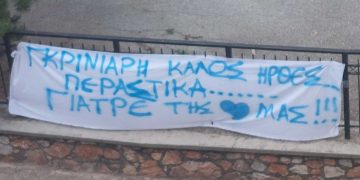 ΓΚΡΙΝΙΑΡΗ ΚΑΛΟΣ ΗΡΘΕΣ...
ΠΕΡΑΣΤΙΚΑ..........
ΓΙΑΤΡΕ ΤΗΣ 💙 ΜΑΣ!!!